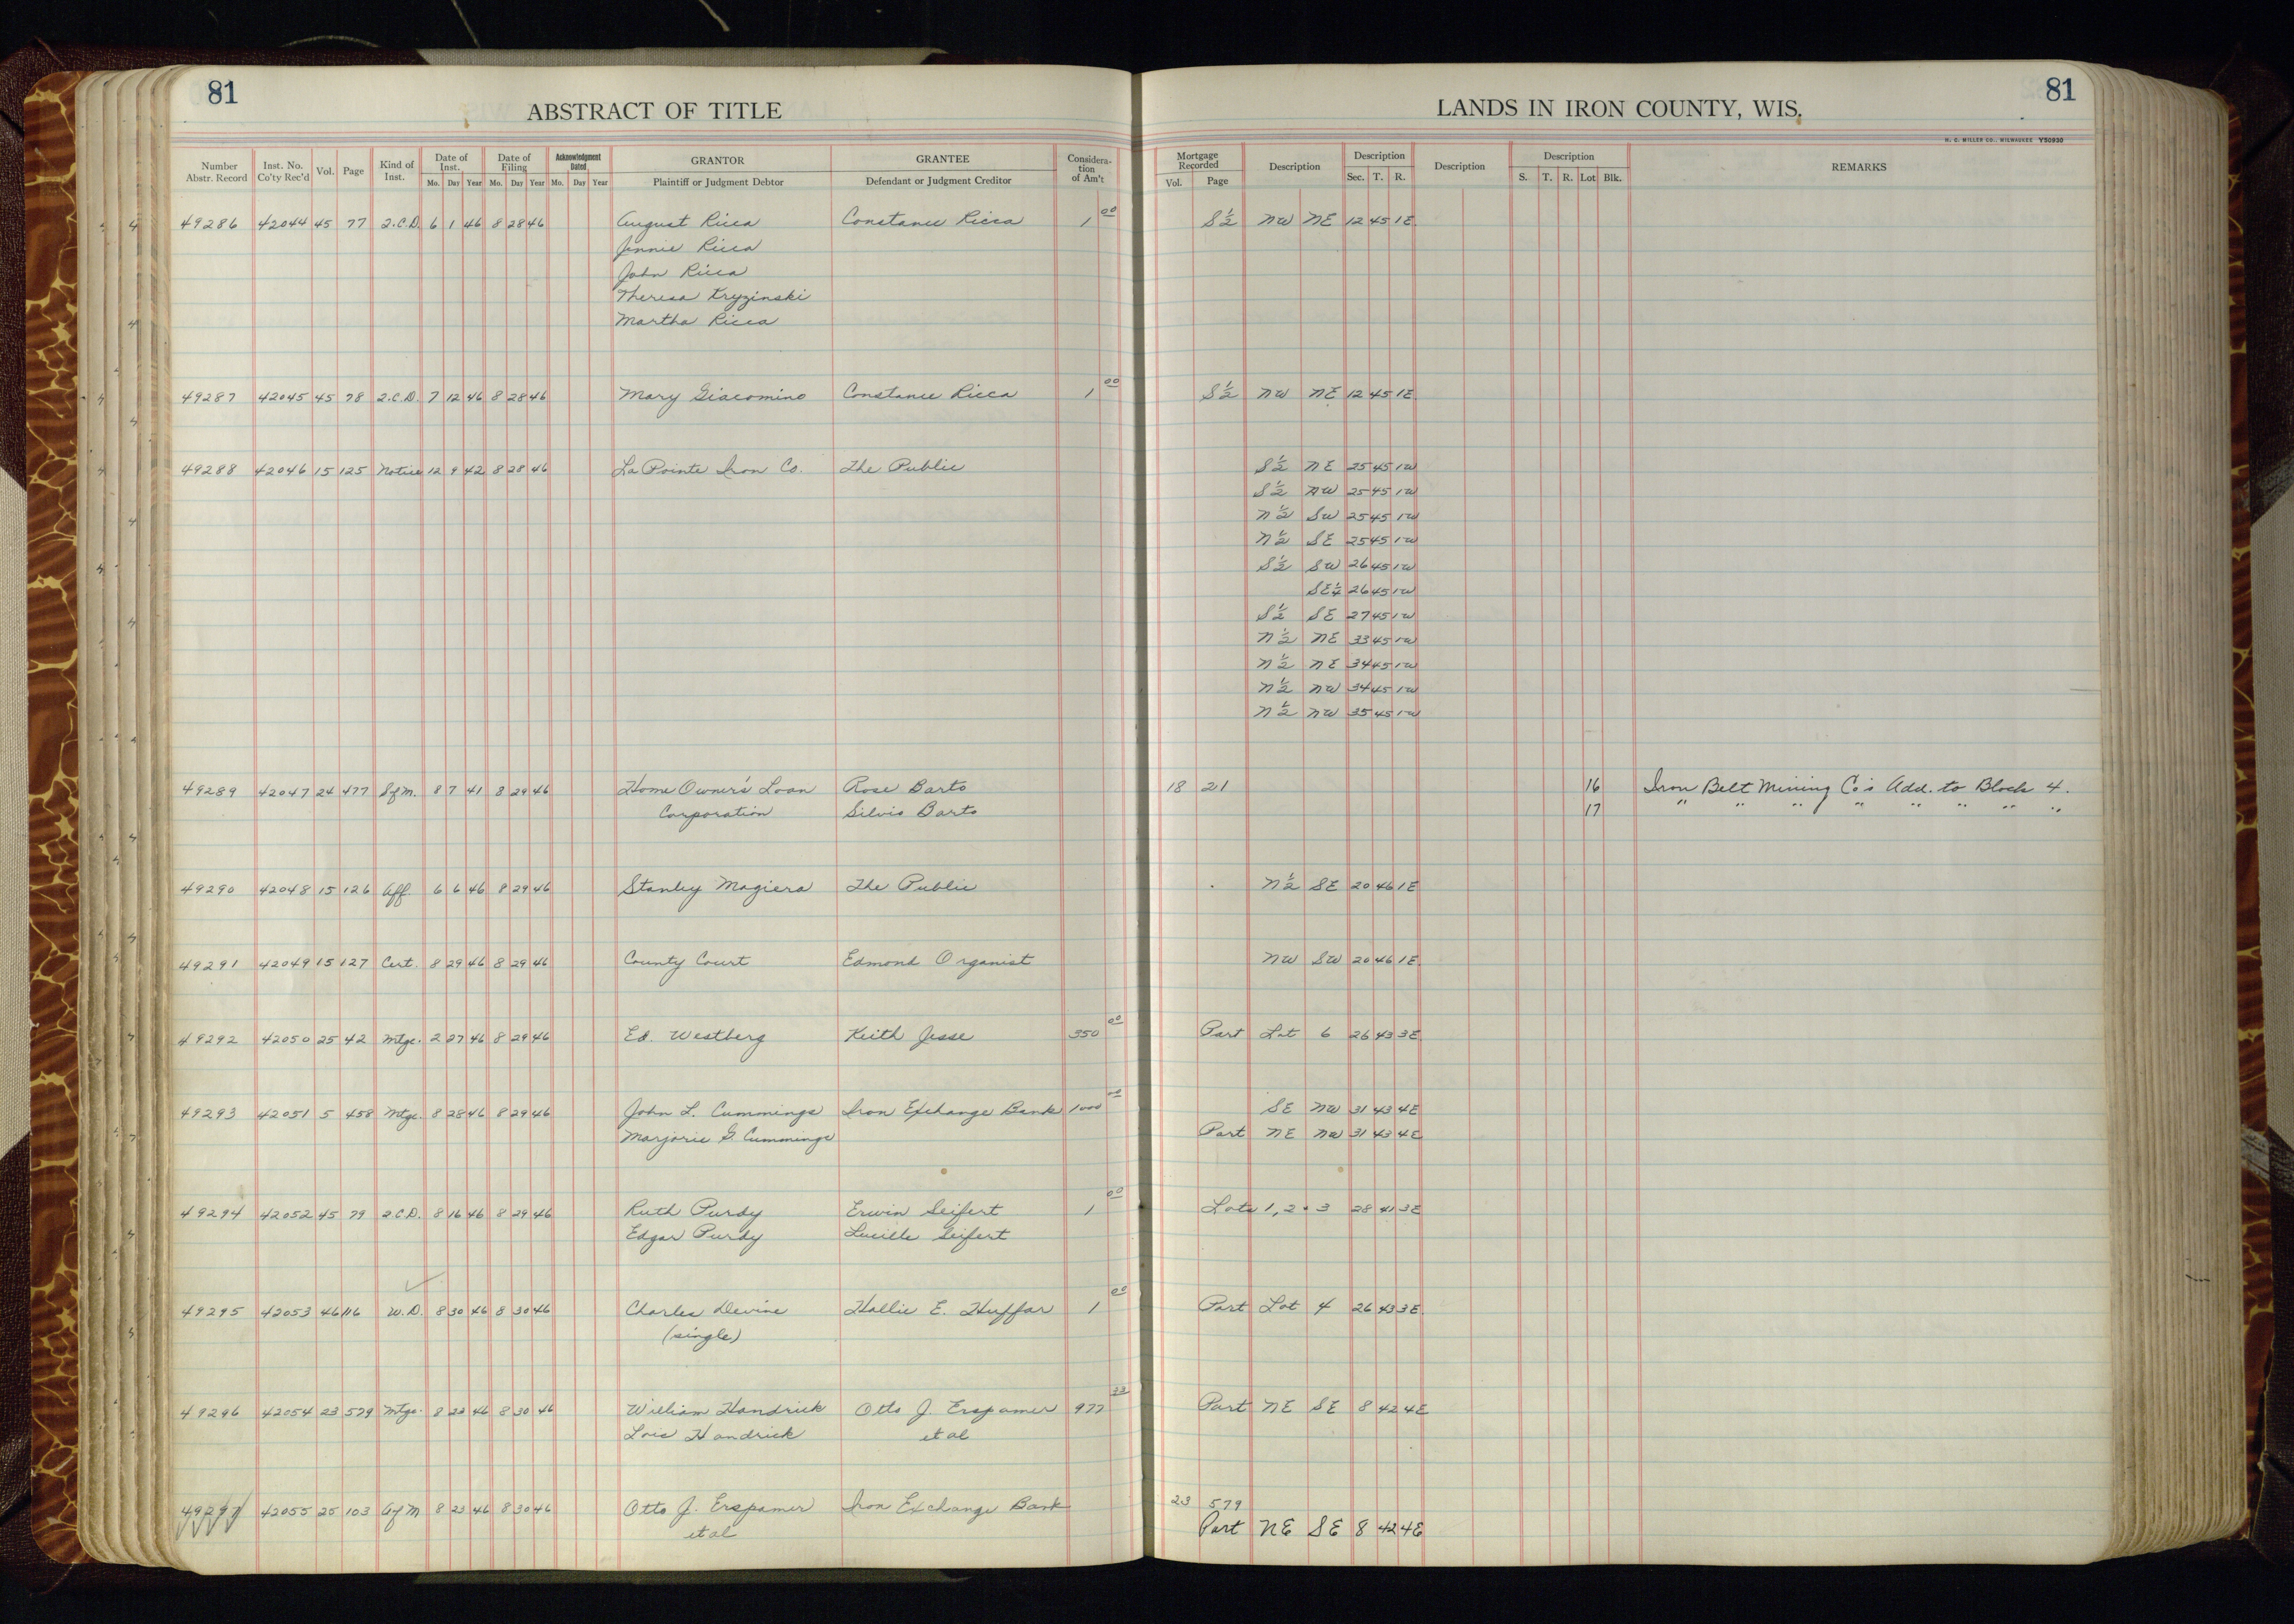 81
ABSTRACT OF TITLE
LANDS IN IRON COUNTY, WIS.
81
H. C. MILLER CO., MILWAUKEE Y50930
Number Abstr. Record Inst. No. Co'ty Rec'd Vol. Page Kind of Inst. Date of Inst. Mo. Day Year Date of Filing Mo. Day Year Acknowledgment Dated Mo. Day Year GRANTOR Plaintiff or Judgment Debtor GRANTEE Defendant or Judgment Creditor Considera-tion of Am't Mortgage Recorded Vol. Page Description Description Sec. T. R. Description Description S. T. R. Lot Blk. REMARKS
49286 42044 45 77 2.C.D. 6 1 46 8 28 46 August Ricca Constance Ricca 1 00 S½ NW NE 12 45 1E
Jennie Ricca
John Ricca
Theresa Kryzinski
Martha Ricca
49287 42045 45 78 2.C.D. 7 12 46 8 28 46 Mary Giacomino Constance Ricca 1 00 S½ NW NE 12 45 1E
49288 42046 15 125 Notice 12 9 42 8 28 46 La Pointe Iron Co. The Public S½ NE 25 45 1W
S½ NW 25 45 1W
N½ SW 25 45 1W
N½ SE 25 45 1W
S½ SW 26 45 1W
SE¼ 26 45 1W
S½ SE 27 45 1W
N½ NE 33 45 1W
N½ NE 34 45 1W
N½ NW 34 45 1W
N½ NW 35 45 1W
49289 42047 24 477 Sf m. 8 7 41 8 29 46 Home Owner's Loan Rose Barto 18 21 16 Iron Belt Mining Co's Add. to Block 4.
Corporation Silvio Barto 17 " " " " " " " "
49290 42048 15 126 Aff. 6 6 46 8 29 46 Stanley Magiera The Public N½ SE 20 46 1E
49291 42049 15 127 Cert. 8 29 46 8 29 46 County Court Edmond Organist NW SW 20 46 1E
49292 42050 25 42 Mtge. 2 27 46 8 29 46 Ed. Westberg Keith Jesse 350 00 Part Lot 6 26 43 3E
49293 42051 5 458 Mtge. 8 28 46 8 29 46 John L. Cummings Iron Exchange Bank 1000 00 SE NW 31 43 4E
Marjorie G. Cummings Part NE NW 31 43 4E
49294 42052 45 79 2.C.D. 8 16 46 8 29 46 Ruth Purdy Erwin Seifert 1 00 Lots 1, 2 + 3 28 41 3E
Edgar Purdy Lucille Seifert
49295 42053 46 116 W.D. 8 30 46 8 30 46 Charles Devine Hallie E. Huffar 1 00 Part Lot 4 26 43 3E
(single)
49296 42054 23 579 Mtge. 8 23 46 8 30 46 William Handrick Otto J. Erspamer 977 23 Part NE SE 8 42 4E
Lois Handrick et al
49297 42055 25 103 Af M 8 23 46 8 30 46 Otto J. Erspamer Iron Exchange Bank 23 579
et al Part NE SE 8 42 4E